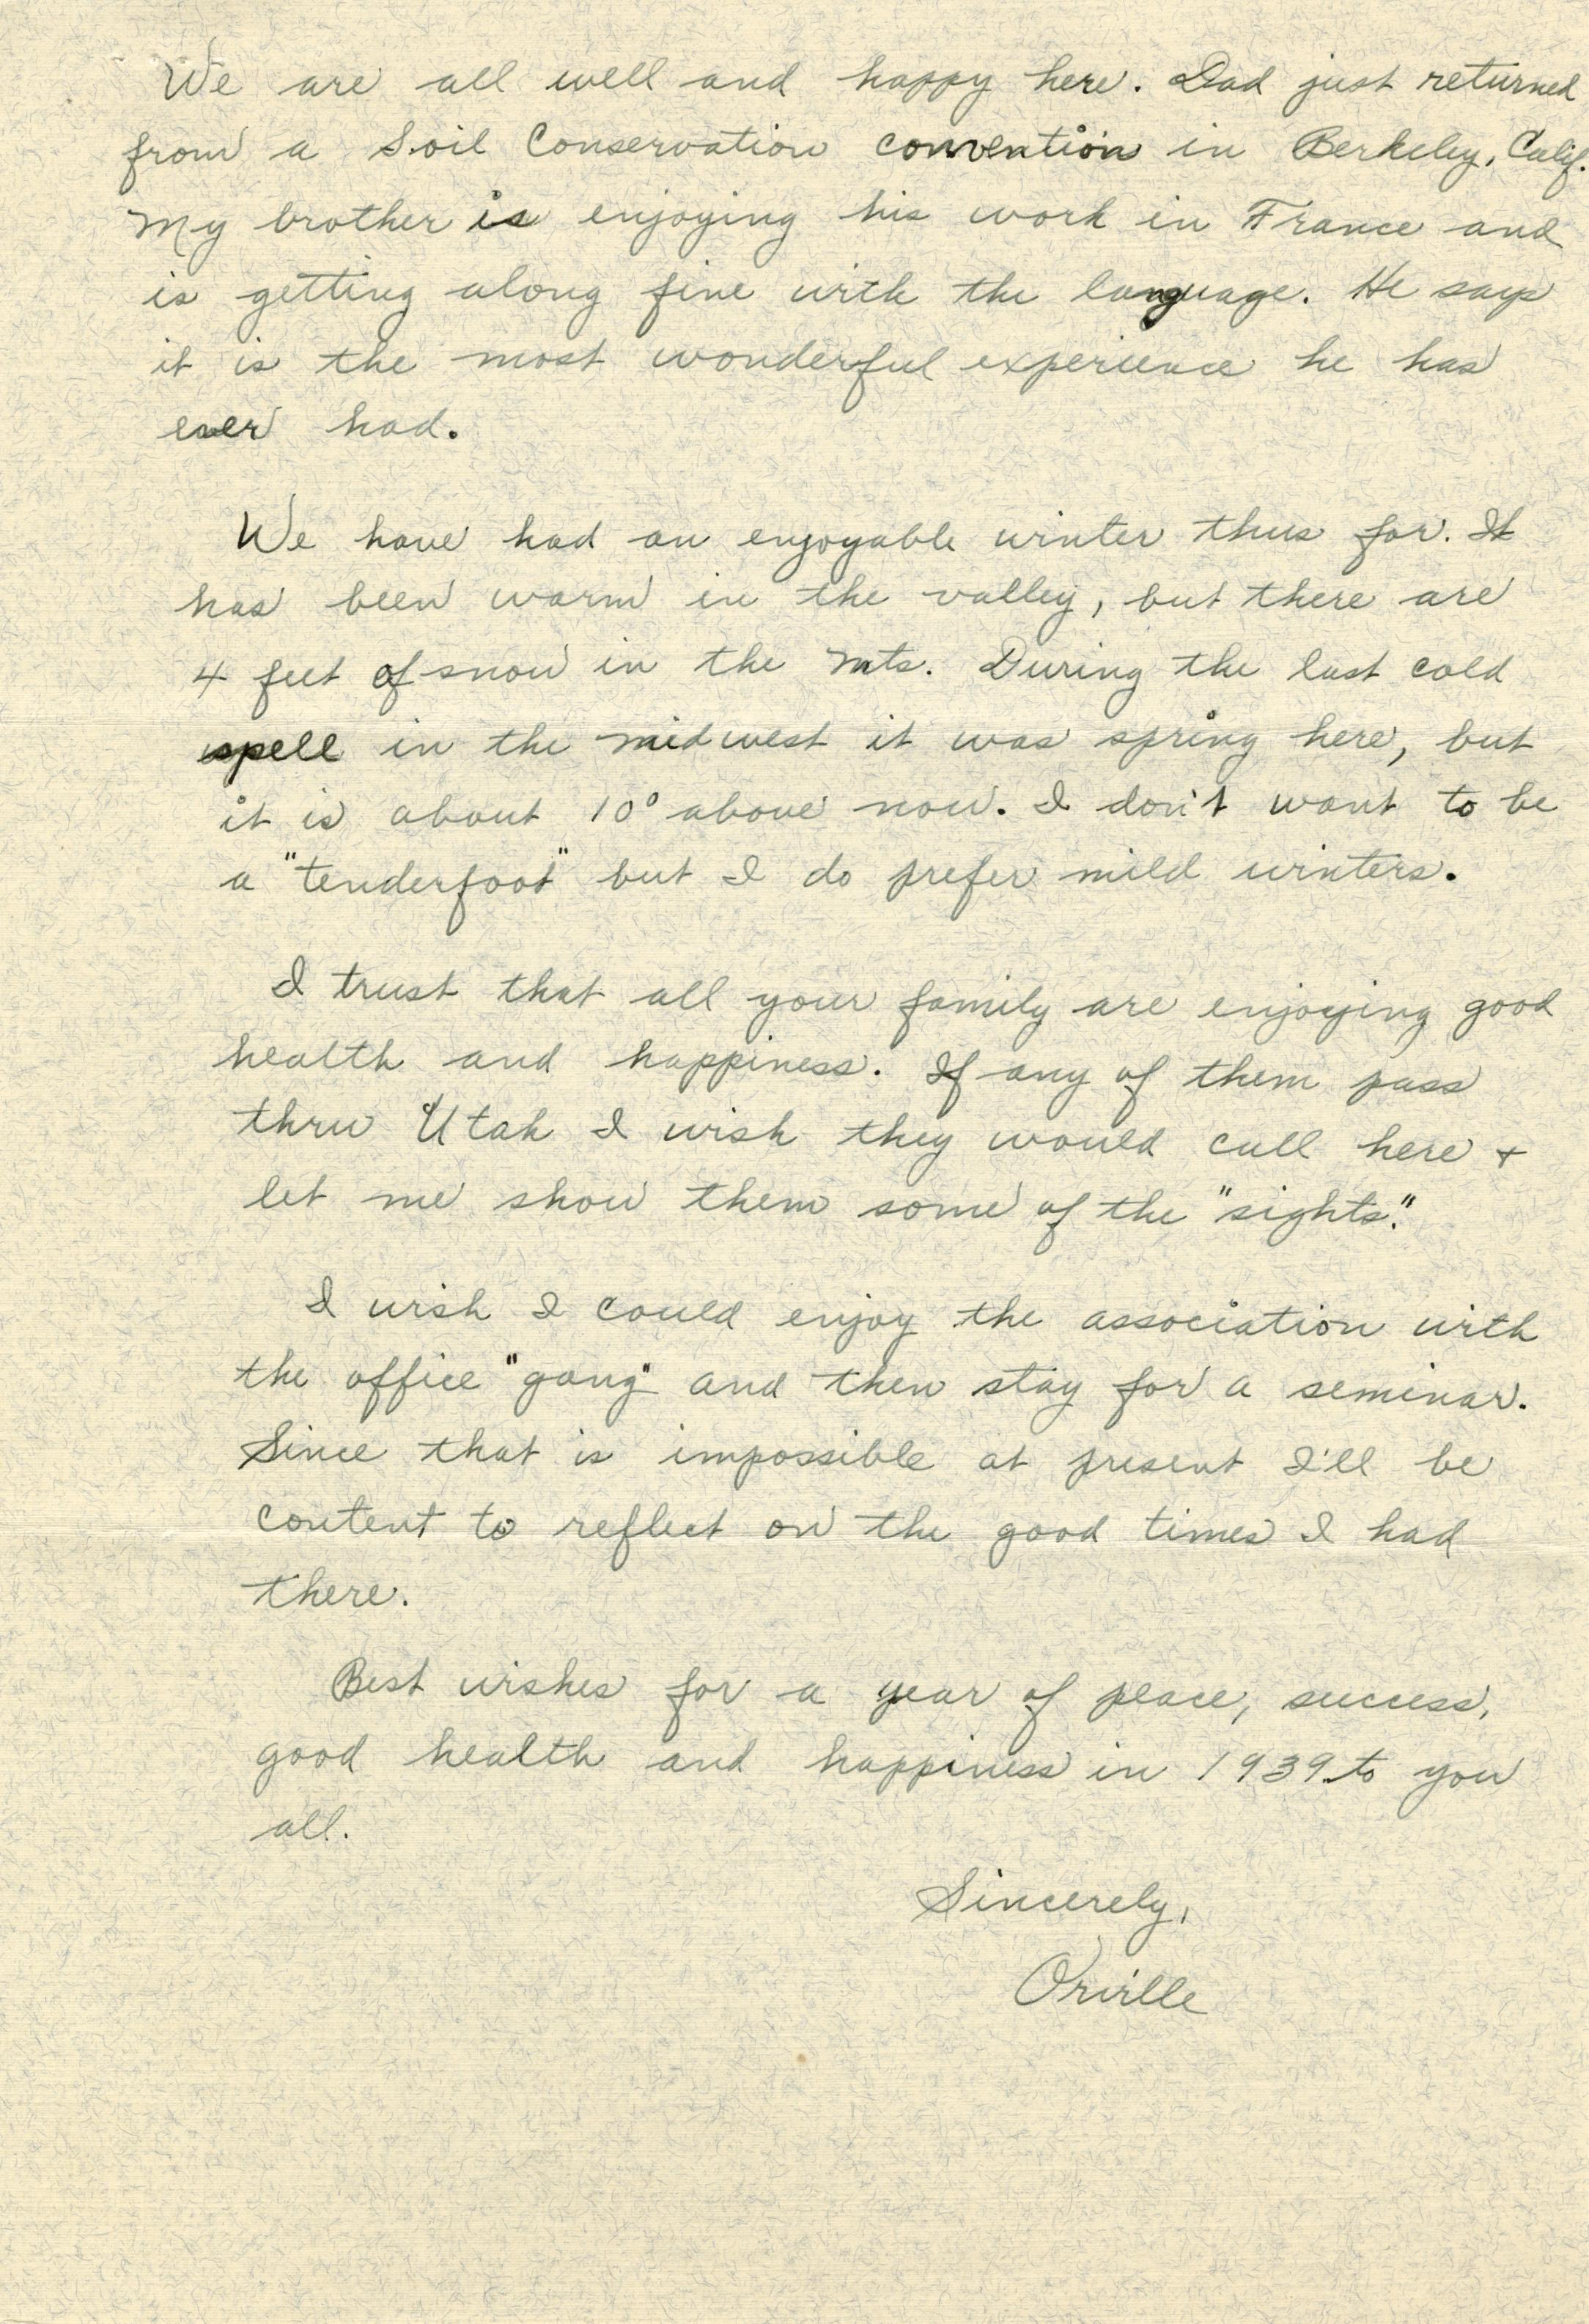 We are all well and happy here. Dad just returned
from a Soil Conservation convention in Berkeley, Calif.
My brother is enjoying his work in France and
is getting along fine with the language. He says
it is the most wonderful experience he has
ever had.
We have had an enjoyable winter thus far. It
has been warm in the valley, but there are
4 feet of snow in the mts. During the last cold
spell in the midwest it was spring here, but
it is about 10° above now. I don't want to be
a "tenderfoot" but I do prefer mild winters.
I trust that all your family are enjoying good
health and happiness. If any of them pass
thru Utah I wish they would call here +
let me show them some of the "sights."
I wish I could enjoy the association with
the office "gang" and then stay for a seminar.
Since that is impossible at present I'll be
content to reflect on the good times I had
there.
Best wishes for a year of peace, success,
good health and happiness in 1939 to you
all.
Sincerely,
Orville